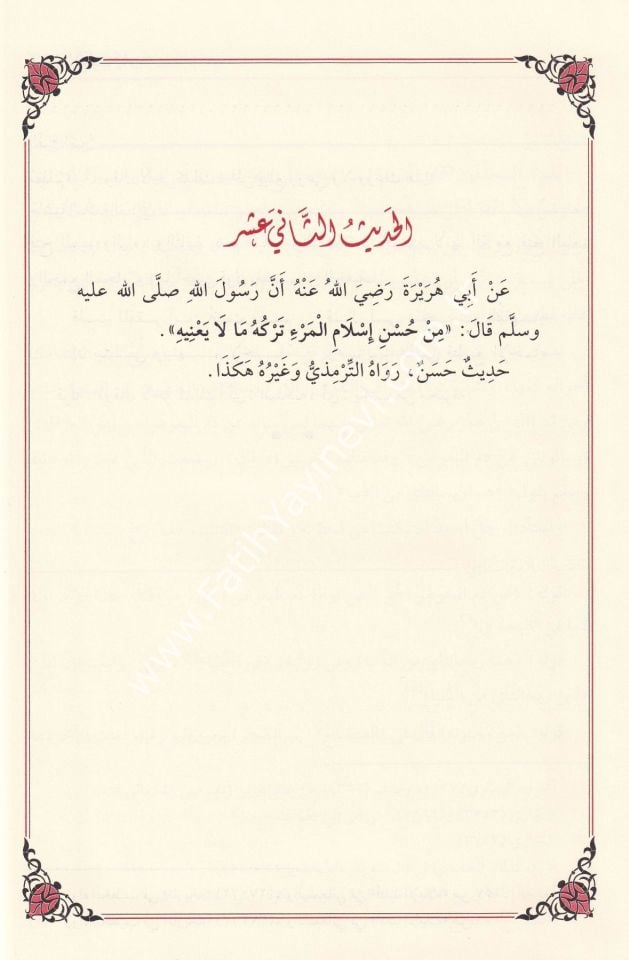 الحديث الثاني عشر
عَنْ أَبِي هُرَيْرَةَ رَضِيَ اللهُ عَنْهُ أَنَّ رَسُولَ اللهِ صلَّى الله عليه
وسلَّم قالَ: «مِنْ حُسْنِ إِسْلَامِ الْمَرْءِ تَرْكُهُ مَا لَا يَعْنِيهِ».
حَدِيثٌ حَسَنٌ، رَوَاهُ التِّرْمِذيُّ وَغَيْرُهُ هَكَذَا.
www.FatihYayinevi.com